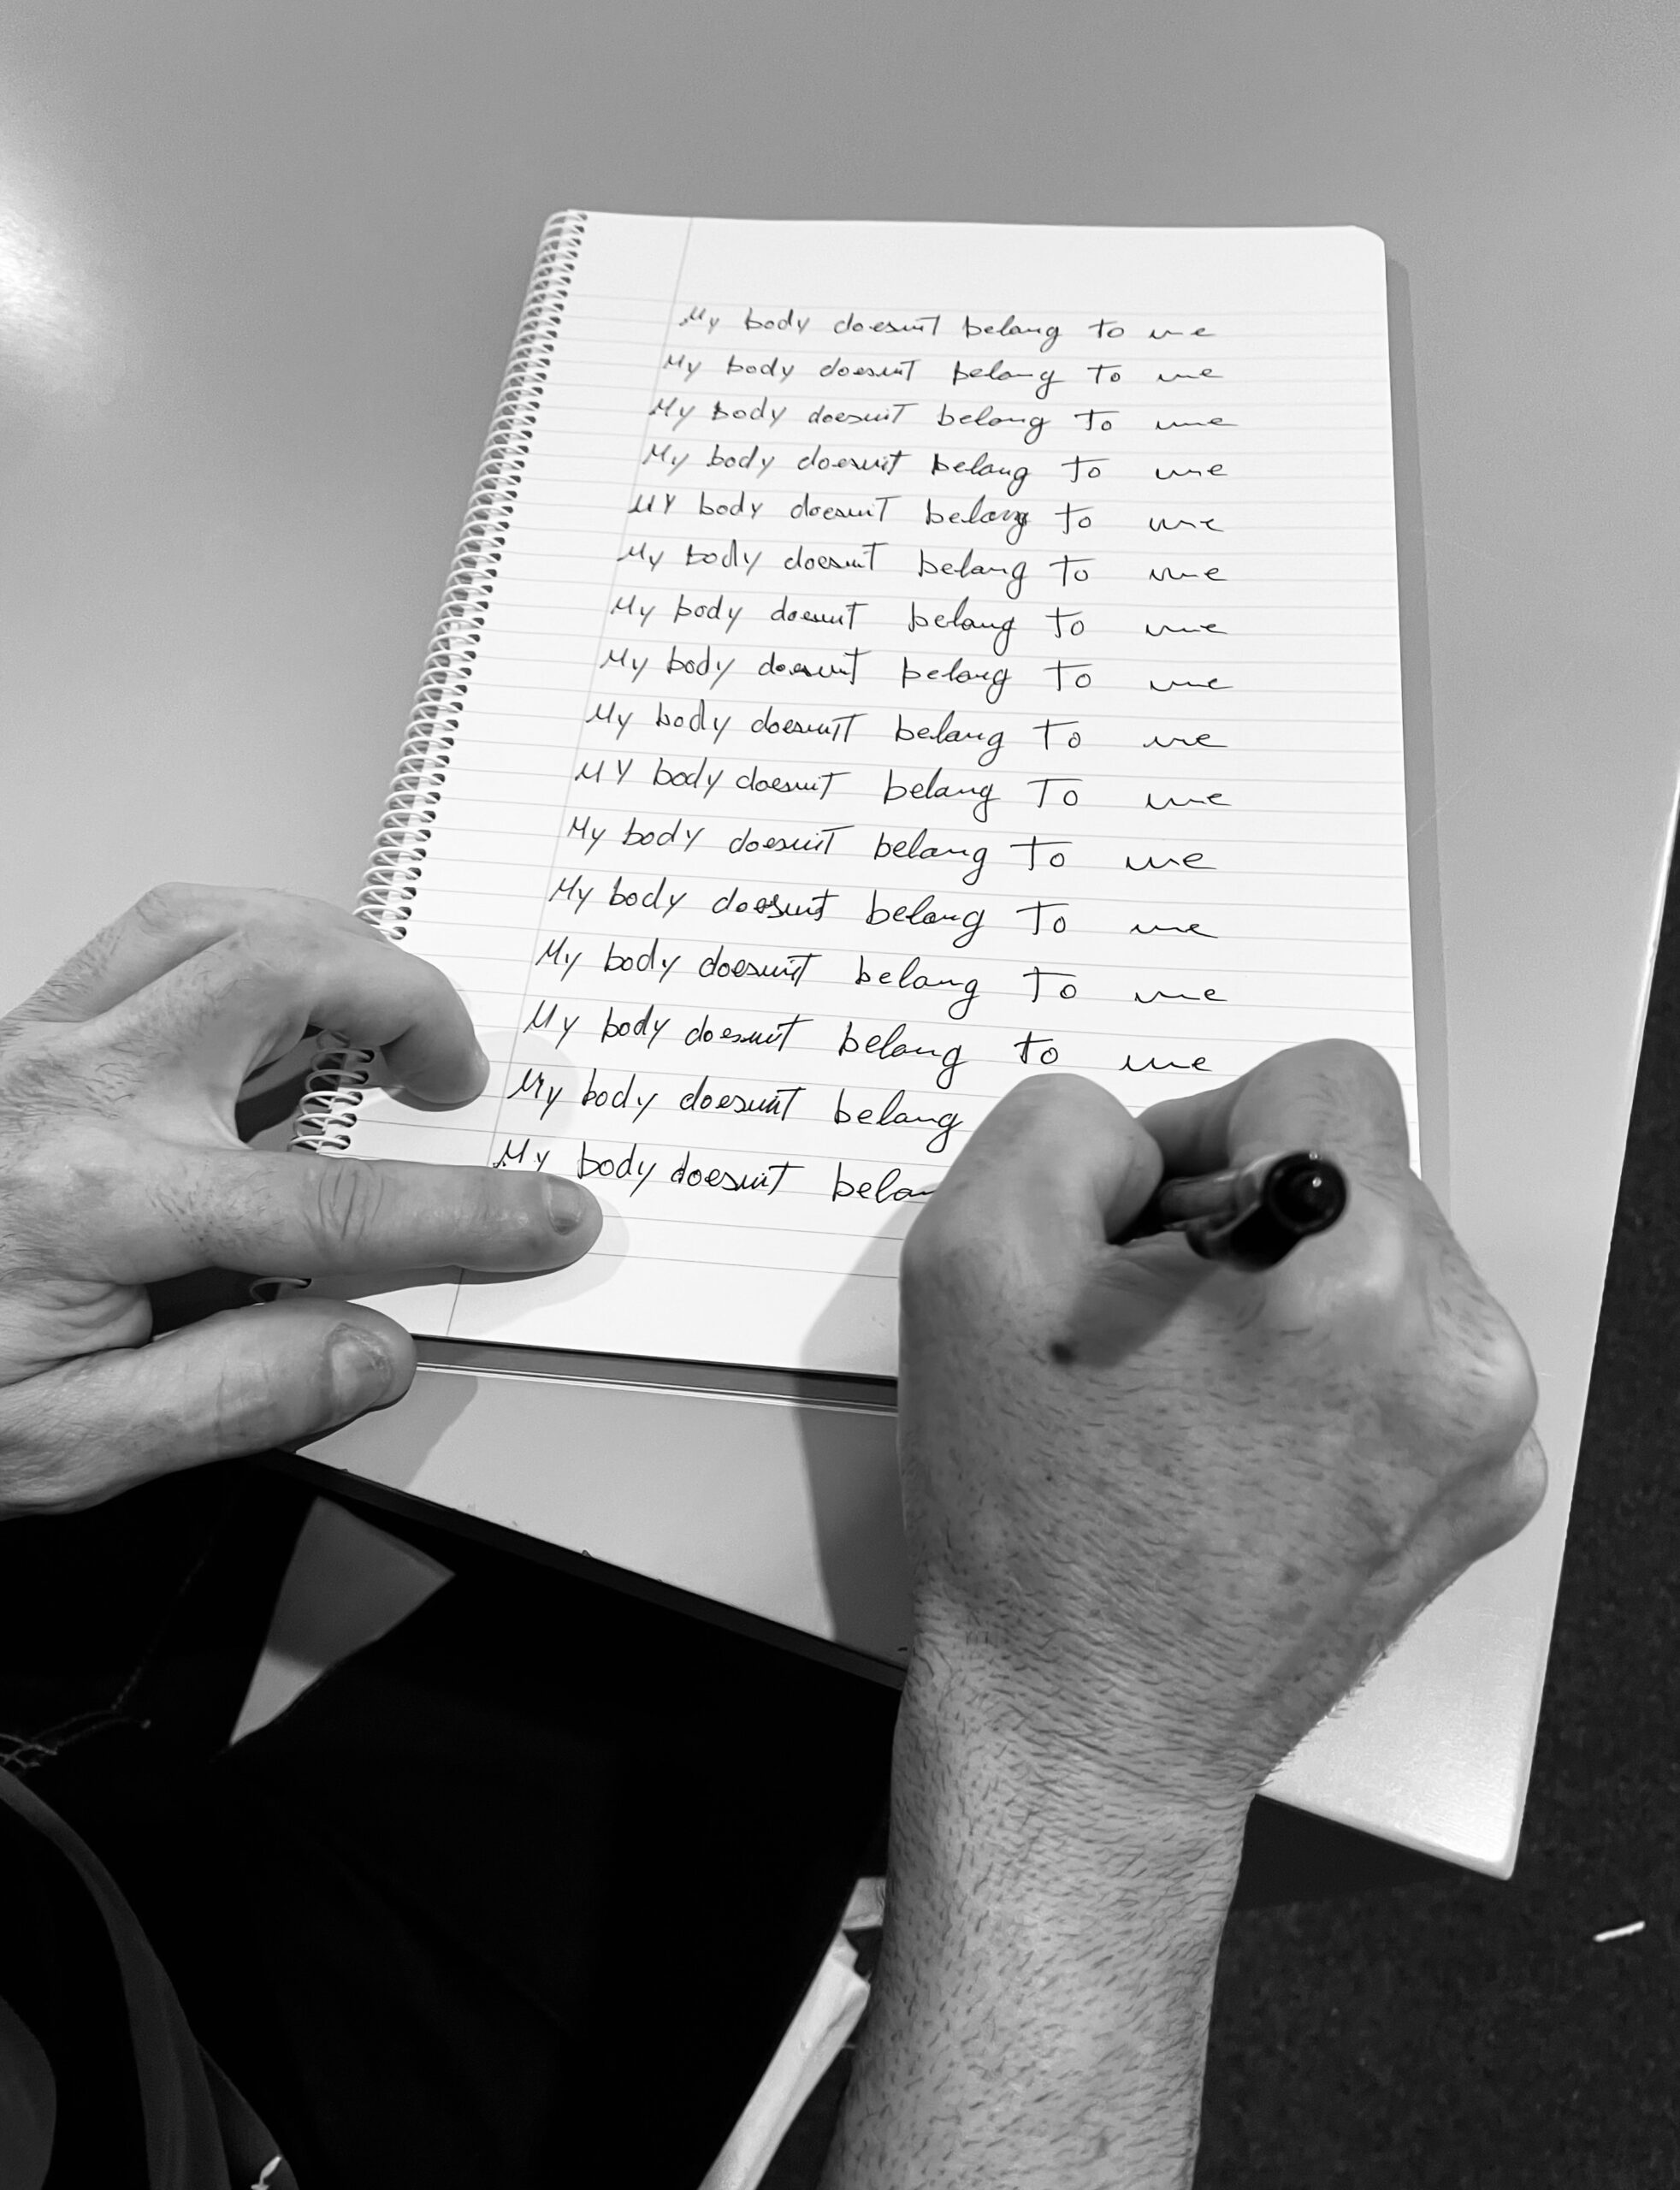 My body doesn't belong to me
My body doesn't belong to me
My body doesn't belong to me
My body doesn't belong to me
MY body doesn't belong to me
My body doesn't belong to me
My body doesn't belong to me
My body doesn't belong to me
My body doesn't belong to me
MY body doesn't belong To me
My body doesn't belong To me
My body doesn't belong To me
My body doesn't belong To me
My body doesn't belong to me
My body doesn't belong
My body doesn't